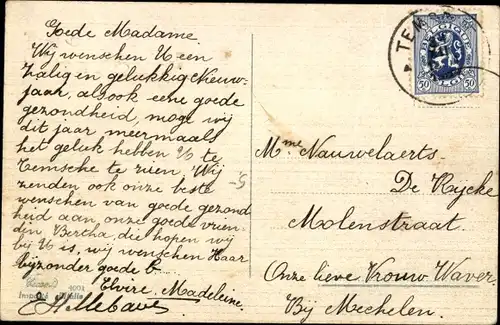 Goede Madame.
Wij wenschen U een
zalig en gelukkig Nieuw-
jaar, alsook eene goede
gezondheid, moge wij
dit jaar meermaals
het geluk hebben U te
Temsche te zien, Wij
zenden ook onze beste
wenschen van goede gezond
heid aan, onze goede vrien-
den, Bertha, die hopen wij
bij U is, wij wenschen Haar
bijzonder goede
Elvire, Madeleine.
4001
Importé d'Italie
TEM
BELGIQUE
50 50
BELGIE
Mme Nauwelaerts
De Rijcke
Molenstraat.
Onze lieve Vrouw Waver.
Bij Mechelen.